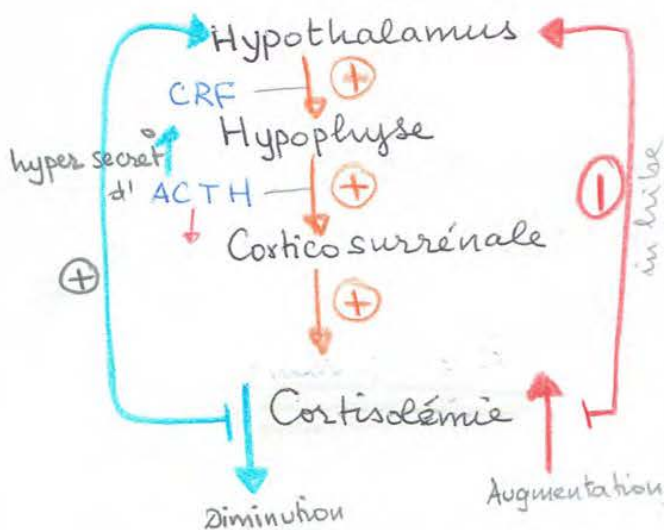 Hypothalamus
CRF +
Hypophyse
hyper secret°
d' ACTH +
Cortico surrénale
+ − inhibe
+
Cortisolémie
Diminution Augmentation